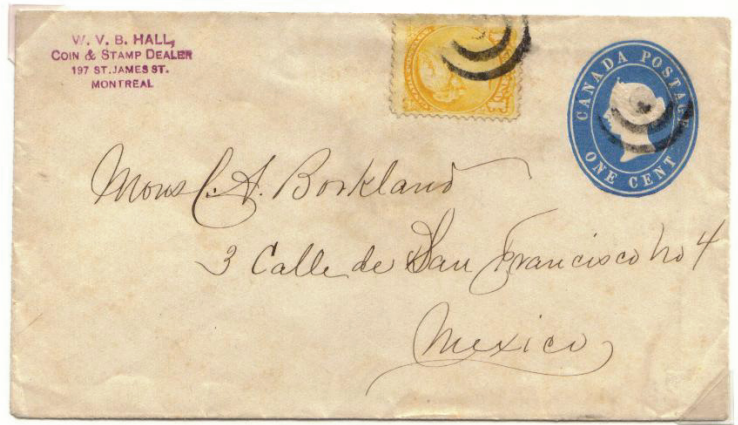 W. V. B. HALL,
COIN & STAMP DEALER
197 ST. JAMES ST.
MONTREAL
CANADA POSTAGE
ONE CENT
Mons C. A. Borkland
3 Calle de San Francisco No 4
Mexico